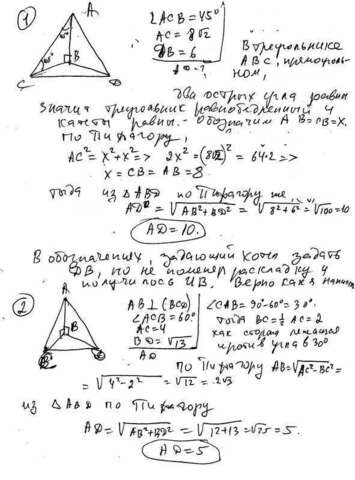 1 A
∠ACB = 45°
AC = 8√2
DB = 6
AD - ?
B
C D
В треугольнике
ABC, прямоуголь-
ном,
два острых угла равны
Значит треугольник равнобедренный и
катеты равны. - Обозначим AB = CB = X.
По Пифагору,
AC² = x² + x² => 2x² = (8√2)² = 64·2 =>
x = CB = AB = 8.
Тогда из △ABD по Пифагору же
AD = √AB²+BD² = √8²+6² = √100 = 10
AD = 10.
В обозначениях, задающий хотел задать
DB, но не поменял раскладку и
получилось ИВ. Верно как я написал
2 A
B
D
AB ⊥ (BCD)
∠ACB = 60°
AC = 4
BD = √13
AD
∠CAB = 90° - 60° = 30°.
Тогда BC = ½ AC = 2
как сторона лежащая
против угла в 30°
По Пифагору AB = √AC² - BC² =
= √4² - 2² = √12 = 2√3
Из △ABD по Пифагору
AD = √AB² + BD² = √12 + 13 = √25 = 5.
AD = 5